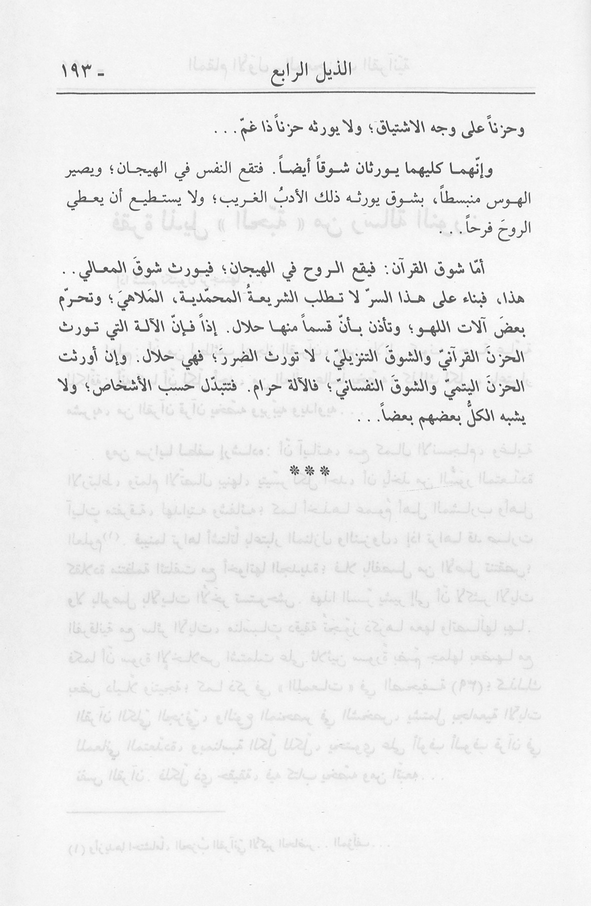 الذيل الرابع
ـ ١٩٣
وحزناً على وجه الاشتياق؛ ولا يورثه حزناً ذا غمّ...
وإنّهما كليهما يورثان شوقاً أيضاً. فتقع النفس في الهيجان؛ ويصير
الهوس منبسطاً، بشوق يورثه ذلك الأدبُ الغريب؛ ولا يستطيع أن يعطي
الروحَ فرحاً...
أمّا شوق القرآن: فيقع الروح في الهيجان؛ فيورث شوقَ المعالي..
هذا، فبناء على هذا السرّ لا تطلب الشريعةُ المحمّدية، المَلاهيَ؛ وتحرّم
بعضَ آلات اللهو؛ وتأذن بأنّ قسماً منها حلال. إذاً فإنّ الآلة التي تورث
الحزنَ القرآنيّ والشوقَ التنزيليّ، لا تورث الضرر؛ فهي حلال. وإن أورثت
الحزنَ اليتميّ والشوقَ النفسانيّ؛ فالآلة حرام. فتتبدّل حسب الأشخاص؛ ولا
يشبه الكلُّ بعضهم بعضاً...
***